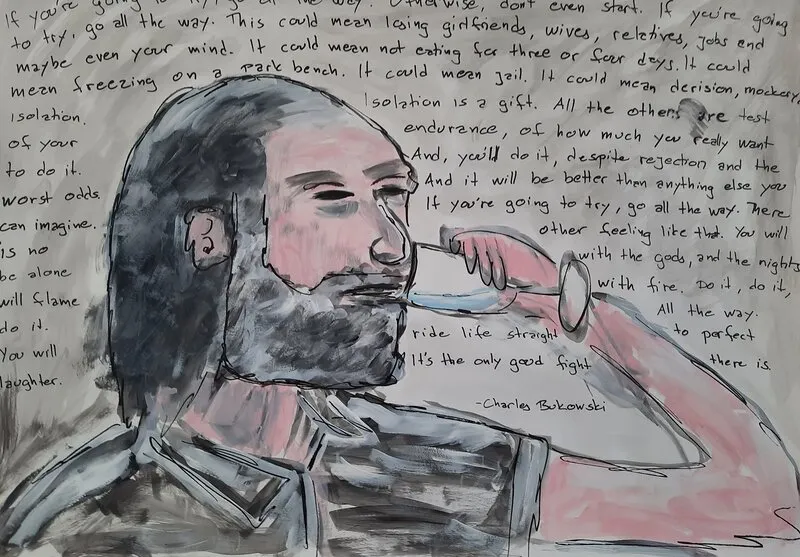 If you're going to try, go all the way. Otherwise, don't even start. If you're going
to try, go all the way. This could mean losing girlfriends, wives, relatives, jobs and
maybe even your mind. It could mean not eating for three or four days. It could
mean freezing on a park bench. It could mean jail. It could mean derision, mockery,
Isolation. Isolation is a gift. All the others are test
of your endurance, of how much you really want
to do it. And, you'll do it, despite rejection and the
worst odds. And it will be better than anything else you
can imagine. If you're going to try, go all the way. There
is no other feeling like that. You will
be alone with the gods, and the nights
will flame with fire. Do it, do it,
do it. All the way.
You will ride life straight to perfect
laughter. It's the only good fight there is.
-Charles Bukowski